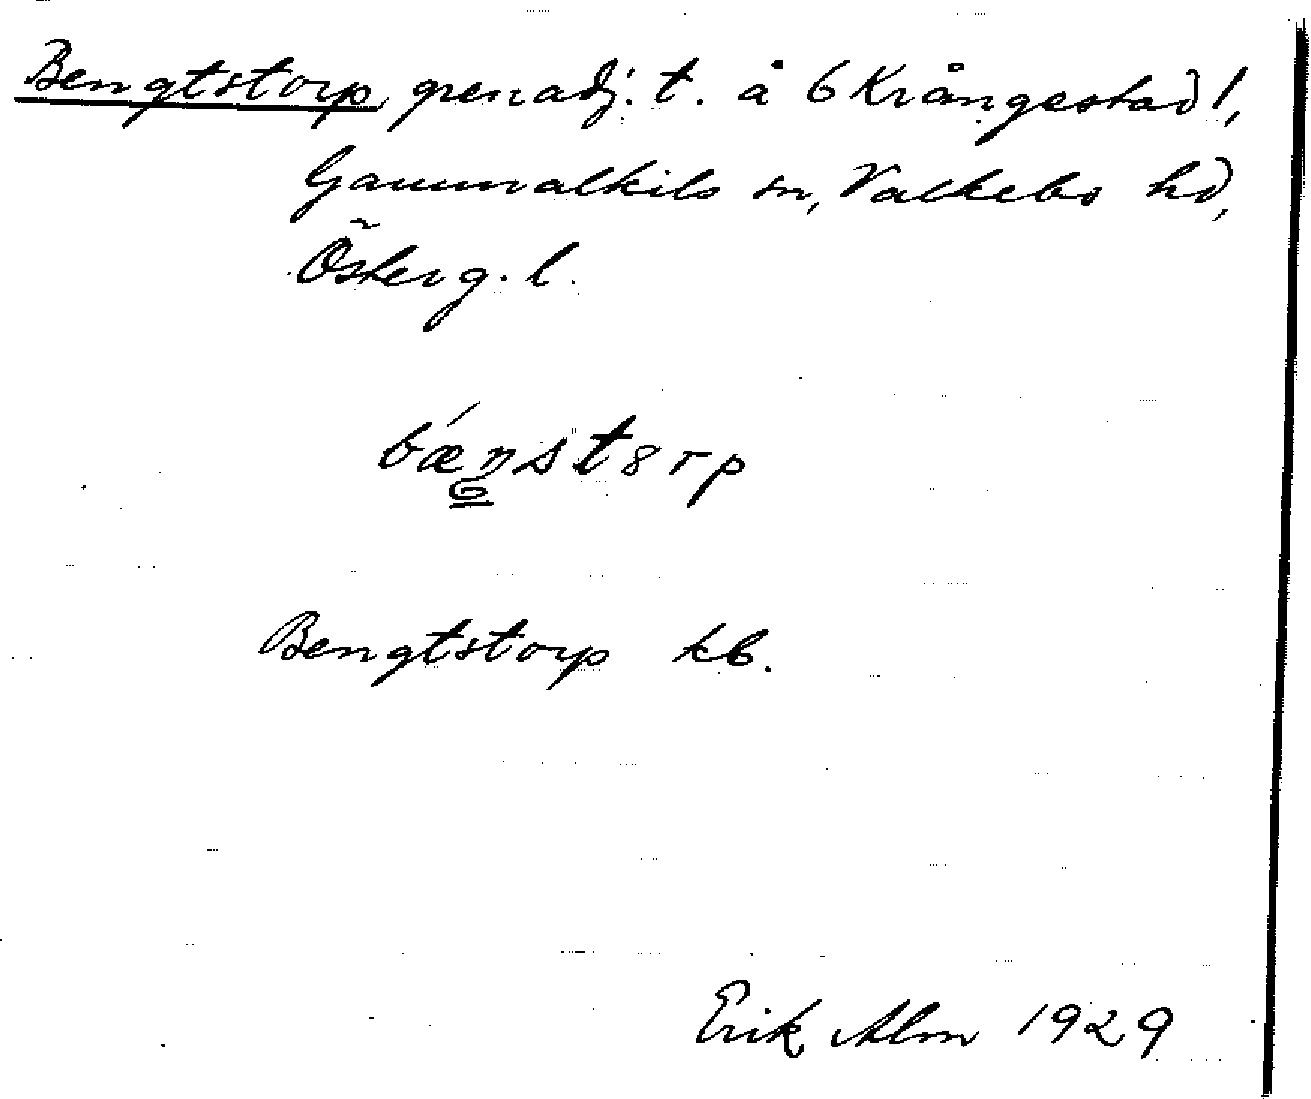 Bengtstorp, grenadj. t. å 6 Krångestad l,
Gammalkils sn, Valkebo hd,
Österg. l.
bǽnst8rp
Bengtstorp kb.
Erik Alm 1929